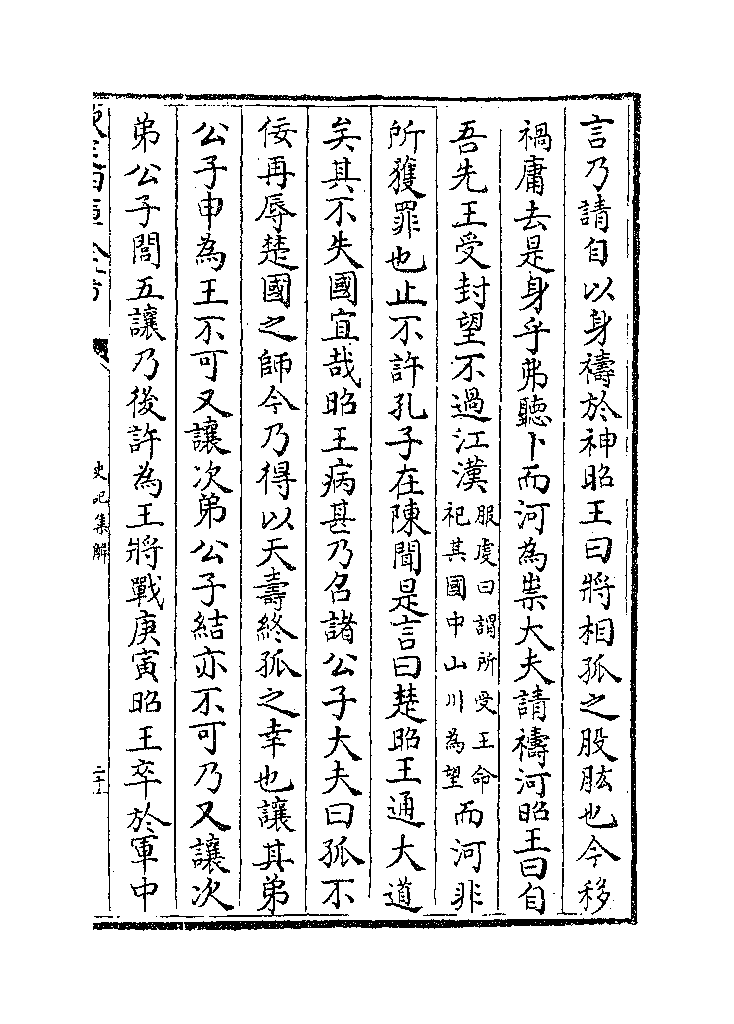 言乃請自以身禱於神昭王曰將相孤之股肱也今移
禍庸去是身乎弗聽卜而河為祟大夫請禱河昭王曰自
吾先王受封望不過江漢服虔曰謂所受王命祀其國中山川為望而河非
所獲罪也止不許孔子在陳聞是言曰楚昭王通大道
矣其不失國宜哉昭王病甚乃召諸公子大夫曰孤不
佞再辱楚國之師今乃得以天壽終孤之幸也讓其弟
公子申為王不可又讓次弟公子結亦不可乃又讓次
弟公子閭五讓乃後許為王將戰庚寅昭王卒於軍中
史記集解